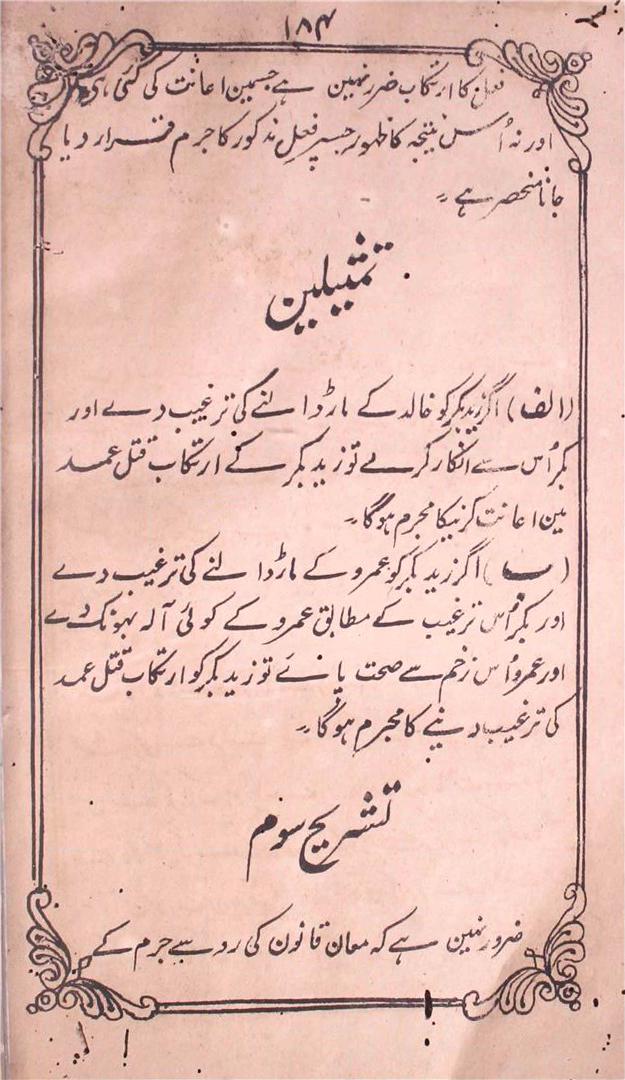 ۱۸۴
فعل کا ارتکاب ضرر نہین ہے جسمین اعانت کی گئی ہی
اور نہ اُس نتیجہ کا ظہور جسپر فعل مذکور کا جرم قرار دیا
جانا منحصر ہے ۔
تمثیلین
(الف) اگر زید بکر کو خالد کے مارڈالنے کی ترغیب دے اور
بکر اُس سے انکار کرے تو زید بکر کے ارتکاب قتل عمد
مین اعانت کرنیکا مجرم ہوگا ۔
(ب) اگر زید بکر کو عمرو کے مارڈالنے کی ترغیب دے
اور بکر اُس ترغیب کے مطابق عمرو کے کوئی آلہ بہونک دے
اور عمرو اُس زخم سے صحت پائے تو زید بکر کو ارتکاب قتل عمد
کی ترغیب دینے کا مجرم ہوگا ۔
تشریح سوم
ضرور نہین ہے کہ معان قانون کی رو سے جرم کے